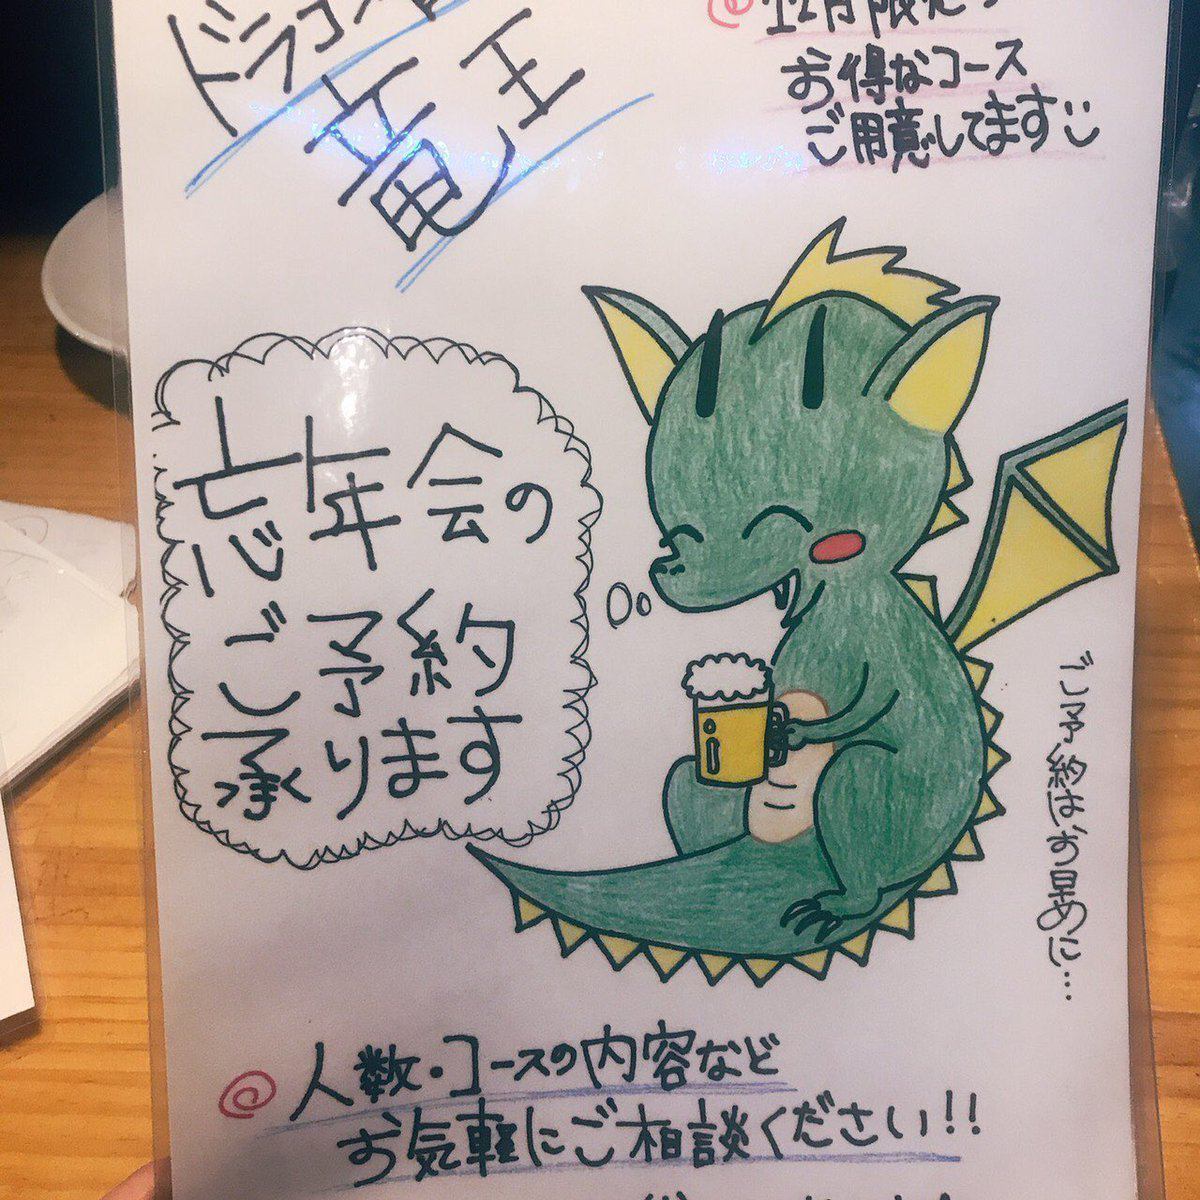 竜王
お得なコース
ご用意してます
忘年会の
ご予約
承ります
ご予約はお早めに…
@人数・コースの内容など
お気軽にご相談ください!!